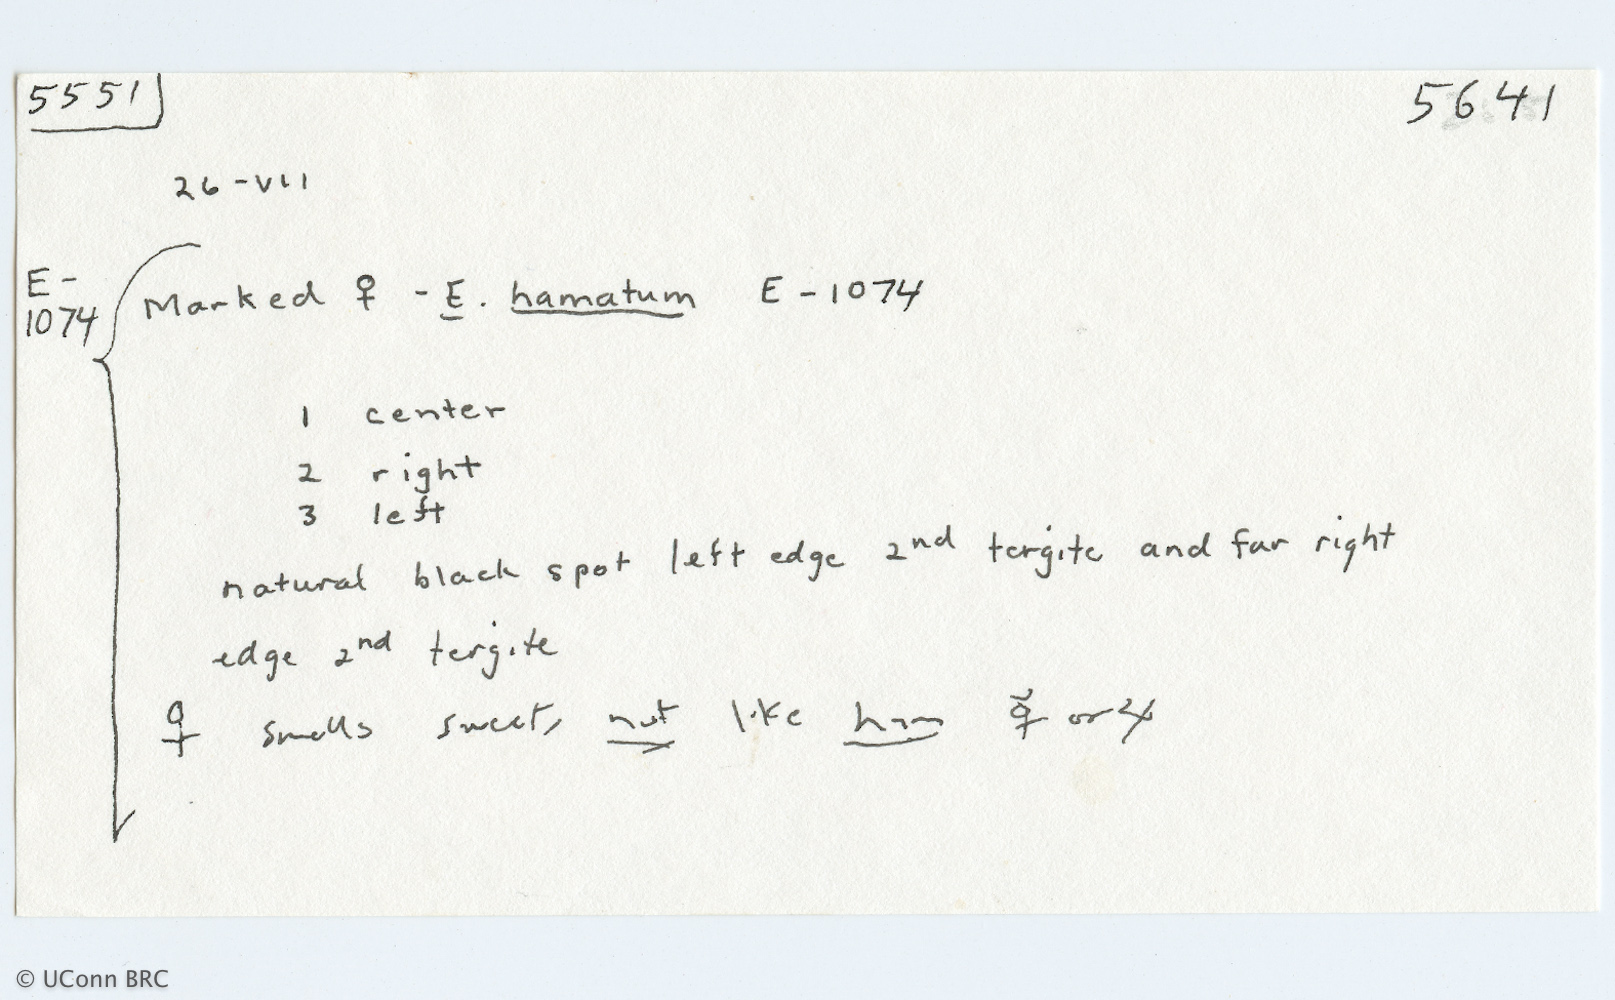 5551
5641
26-VII
E-
1074
Marked ♀ - E. hamatum E-1074
1 center
2 right
3 left
natural black spot left edge 2nd tergite and far right
edge 2nd tergite
♀ smells sweet, not like ham ☿ or 4
© UConn BRC